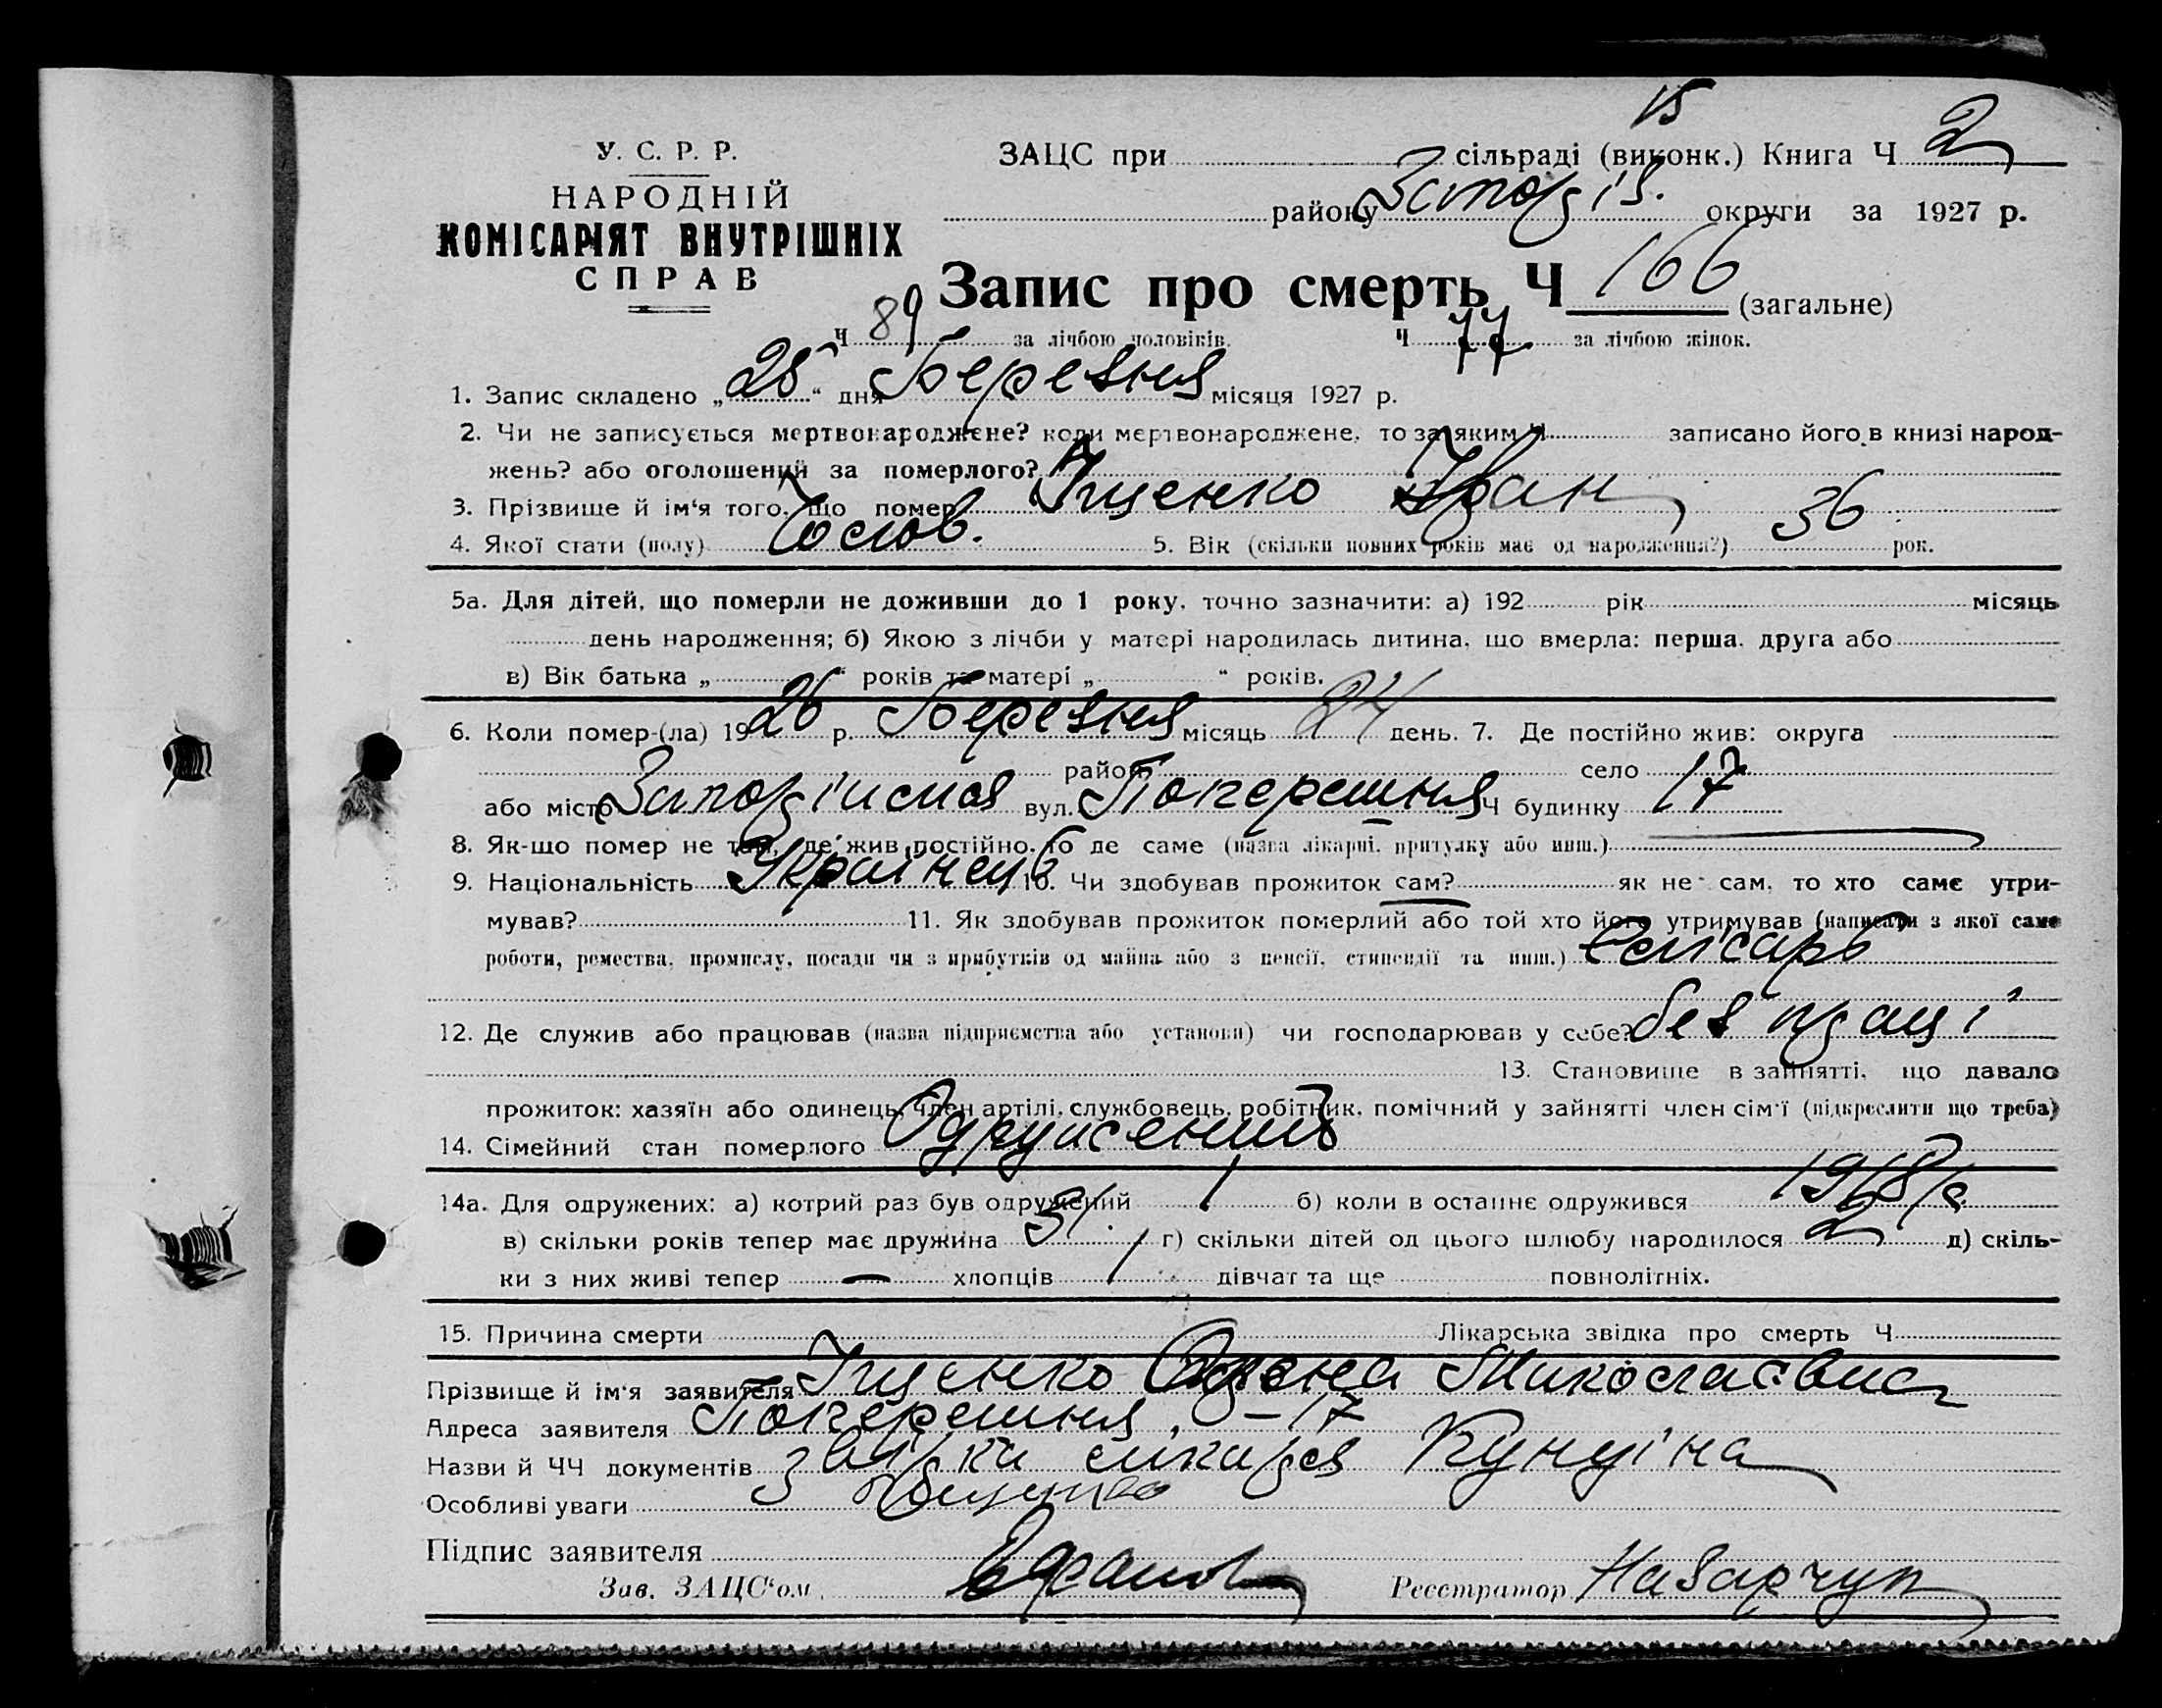 15
У. С. Р. Р.
ЗАЦС при сільраді (виконк.) Книга Ч 2
НАРОДНІЙ
району Запоріз. округи за 1927 р.
КОМІСАРІЯТ ВНУТРІШНІХ
СПРАВ
Запис про смерть Ч 166 (загальне)
Ч 89 за лічбою чоловіків. Ч 77 за лічбою жінок.
1. Запис складено „25“ дня Березня місяця 1927 р.
2. Чи не записується мертвонароджене? коли мертвонароджене, то за яким Ч записано його в книзі народ-
жень? або оголошений за померлого?
3. Прізвище й ім‘я того, що помер Іщенко Іван
4. Якої стати (полу) Чолов. 5. Вік (скільки повних років має од народження?) 36 рок.
5а. Для дітей, що померли не доживши до 1 року, точно зазначити: а) 192 рік місяць
день народження; б) Якою з лічби у матері народилась дитина, що вмерла: перша, друга або
в) Вік батька „ “ років та матері „ “ років.
6. Коли помер-(ла) 1926 р. Березня місяць 24 день. 7. Де постійно жив: округа
район село
або місто Запоріжжя вул. Поперешня Ч будинку 17
8. Як-що помер не там, де жив постійно, то де саме (назва лікарні, притулку або инш.)
9. Національність Українець 10. Чи здобував прожиток сам? як не сам, то хто саме утри-
мував? 11. Як здобував прожиток померлий або той хто його утримував (написати з якої саме
роботи, ремества, промислу, посади чи з прибутків од майна або з пенсії, стипендії та инш.) Слюсарь
12. Де служив або працював (назва підприємства або установи) чи господарював у себе? без праці
13. Становище в зайнятті, що давало
прожиток: хазяїн або одинець, член артілі, службовець, робітник, помічний у зайнятті член сім‘ї (підкреслити що треба)
14. Сімейний стан померлого Одружений
14а. Для одружених: а) котрий раз був одружений 1 б) коли в останнє одружився 1918 р.
в) скільки років тепер має дружина 31 г) скільки дітей од цього шлюбу народилося 2 д) скіль-
ки з них живі тепер — хлопців 1 дівчат та ще повнолітніх.
15. Причина смерти Лікарська звідка про смерть Ч
Прізвище й ім‘я заявителя Іщенко Миколаєвна
Адреса заявителя Поперешня – 17
Назви й ЧЧ документів звідки лікаря
Особливі уваги
Підпис заявителя
Зав. ЗАЦС‘ом Реєстратор Назарчук